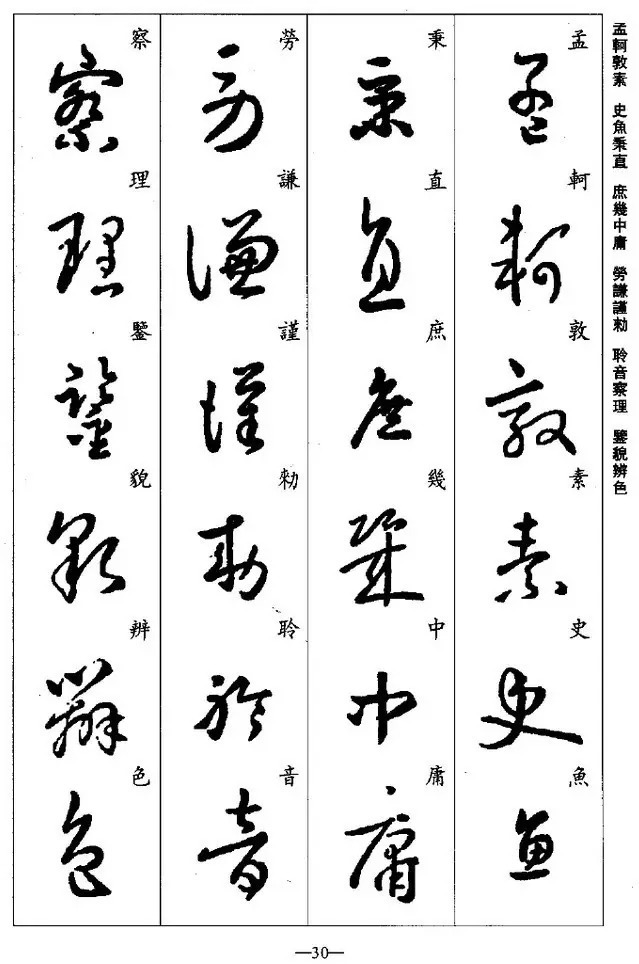 孟軻敦素　史魚秉直　庶幾中庸　勞謙謹勑　聆音察理　鑒貌辨色
孟軻敦素史魚
秉直庶幾中庸
勞謙謹勑聆音
察理鑒貌辨色
—30—